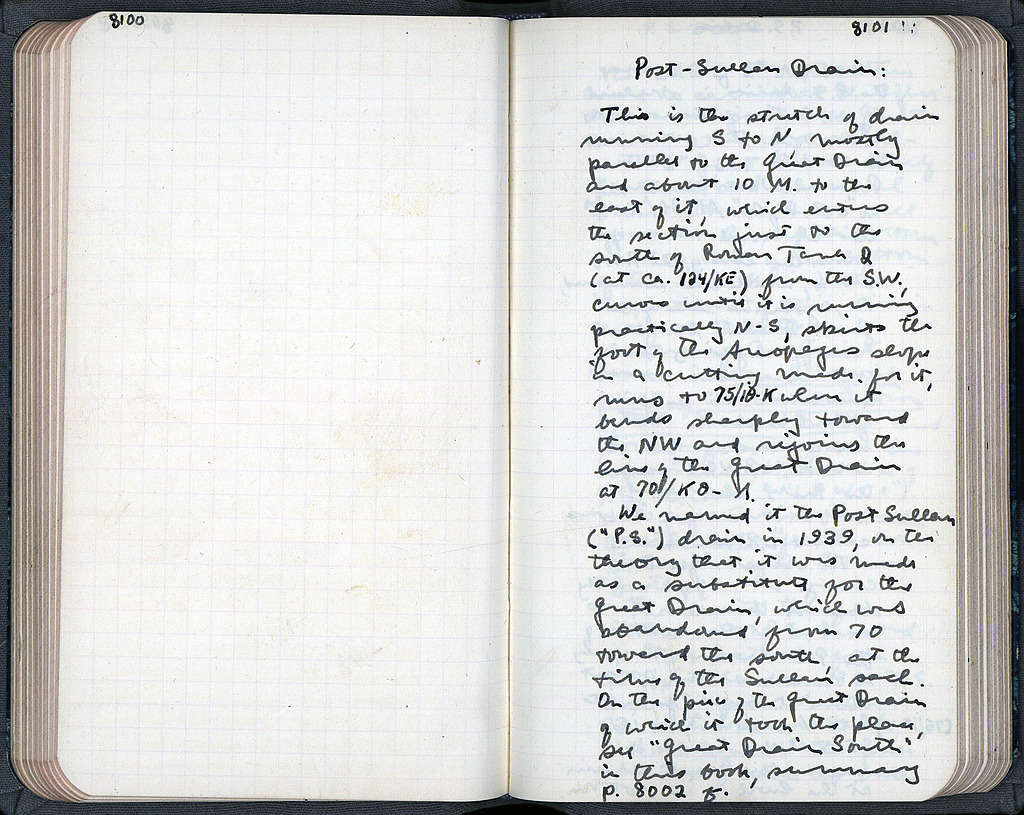 8100
8101
Post-Sullan Drain:
This is the stretch of drain
running S to N mostly
parallel to the Great Drain
and about 10 M. to the
east of it, which enters
the section just to the
south of Roman Tank
(at ca. 124/KE) from the S.W.,
curves until it is running
practically N-S, skirts the
foot of the Areopagus slope
in a cutting made for it,
runs to 75/ when it
bends sharply toward
the NW and rejoins the
line of the Great Drain
at 70/
We named it the Post Sullan
("P.S.") drain in 1939, on the
theory that it was made
as a substitute for the
Great Drain, which was
abandoned, from 70
toward the south, at the
time of the Sullan sack.
On the piece of the Great Drain
of which it took the place,
see "Great Drain South"
in this book, summary
p. 8002 ff.